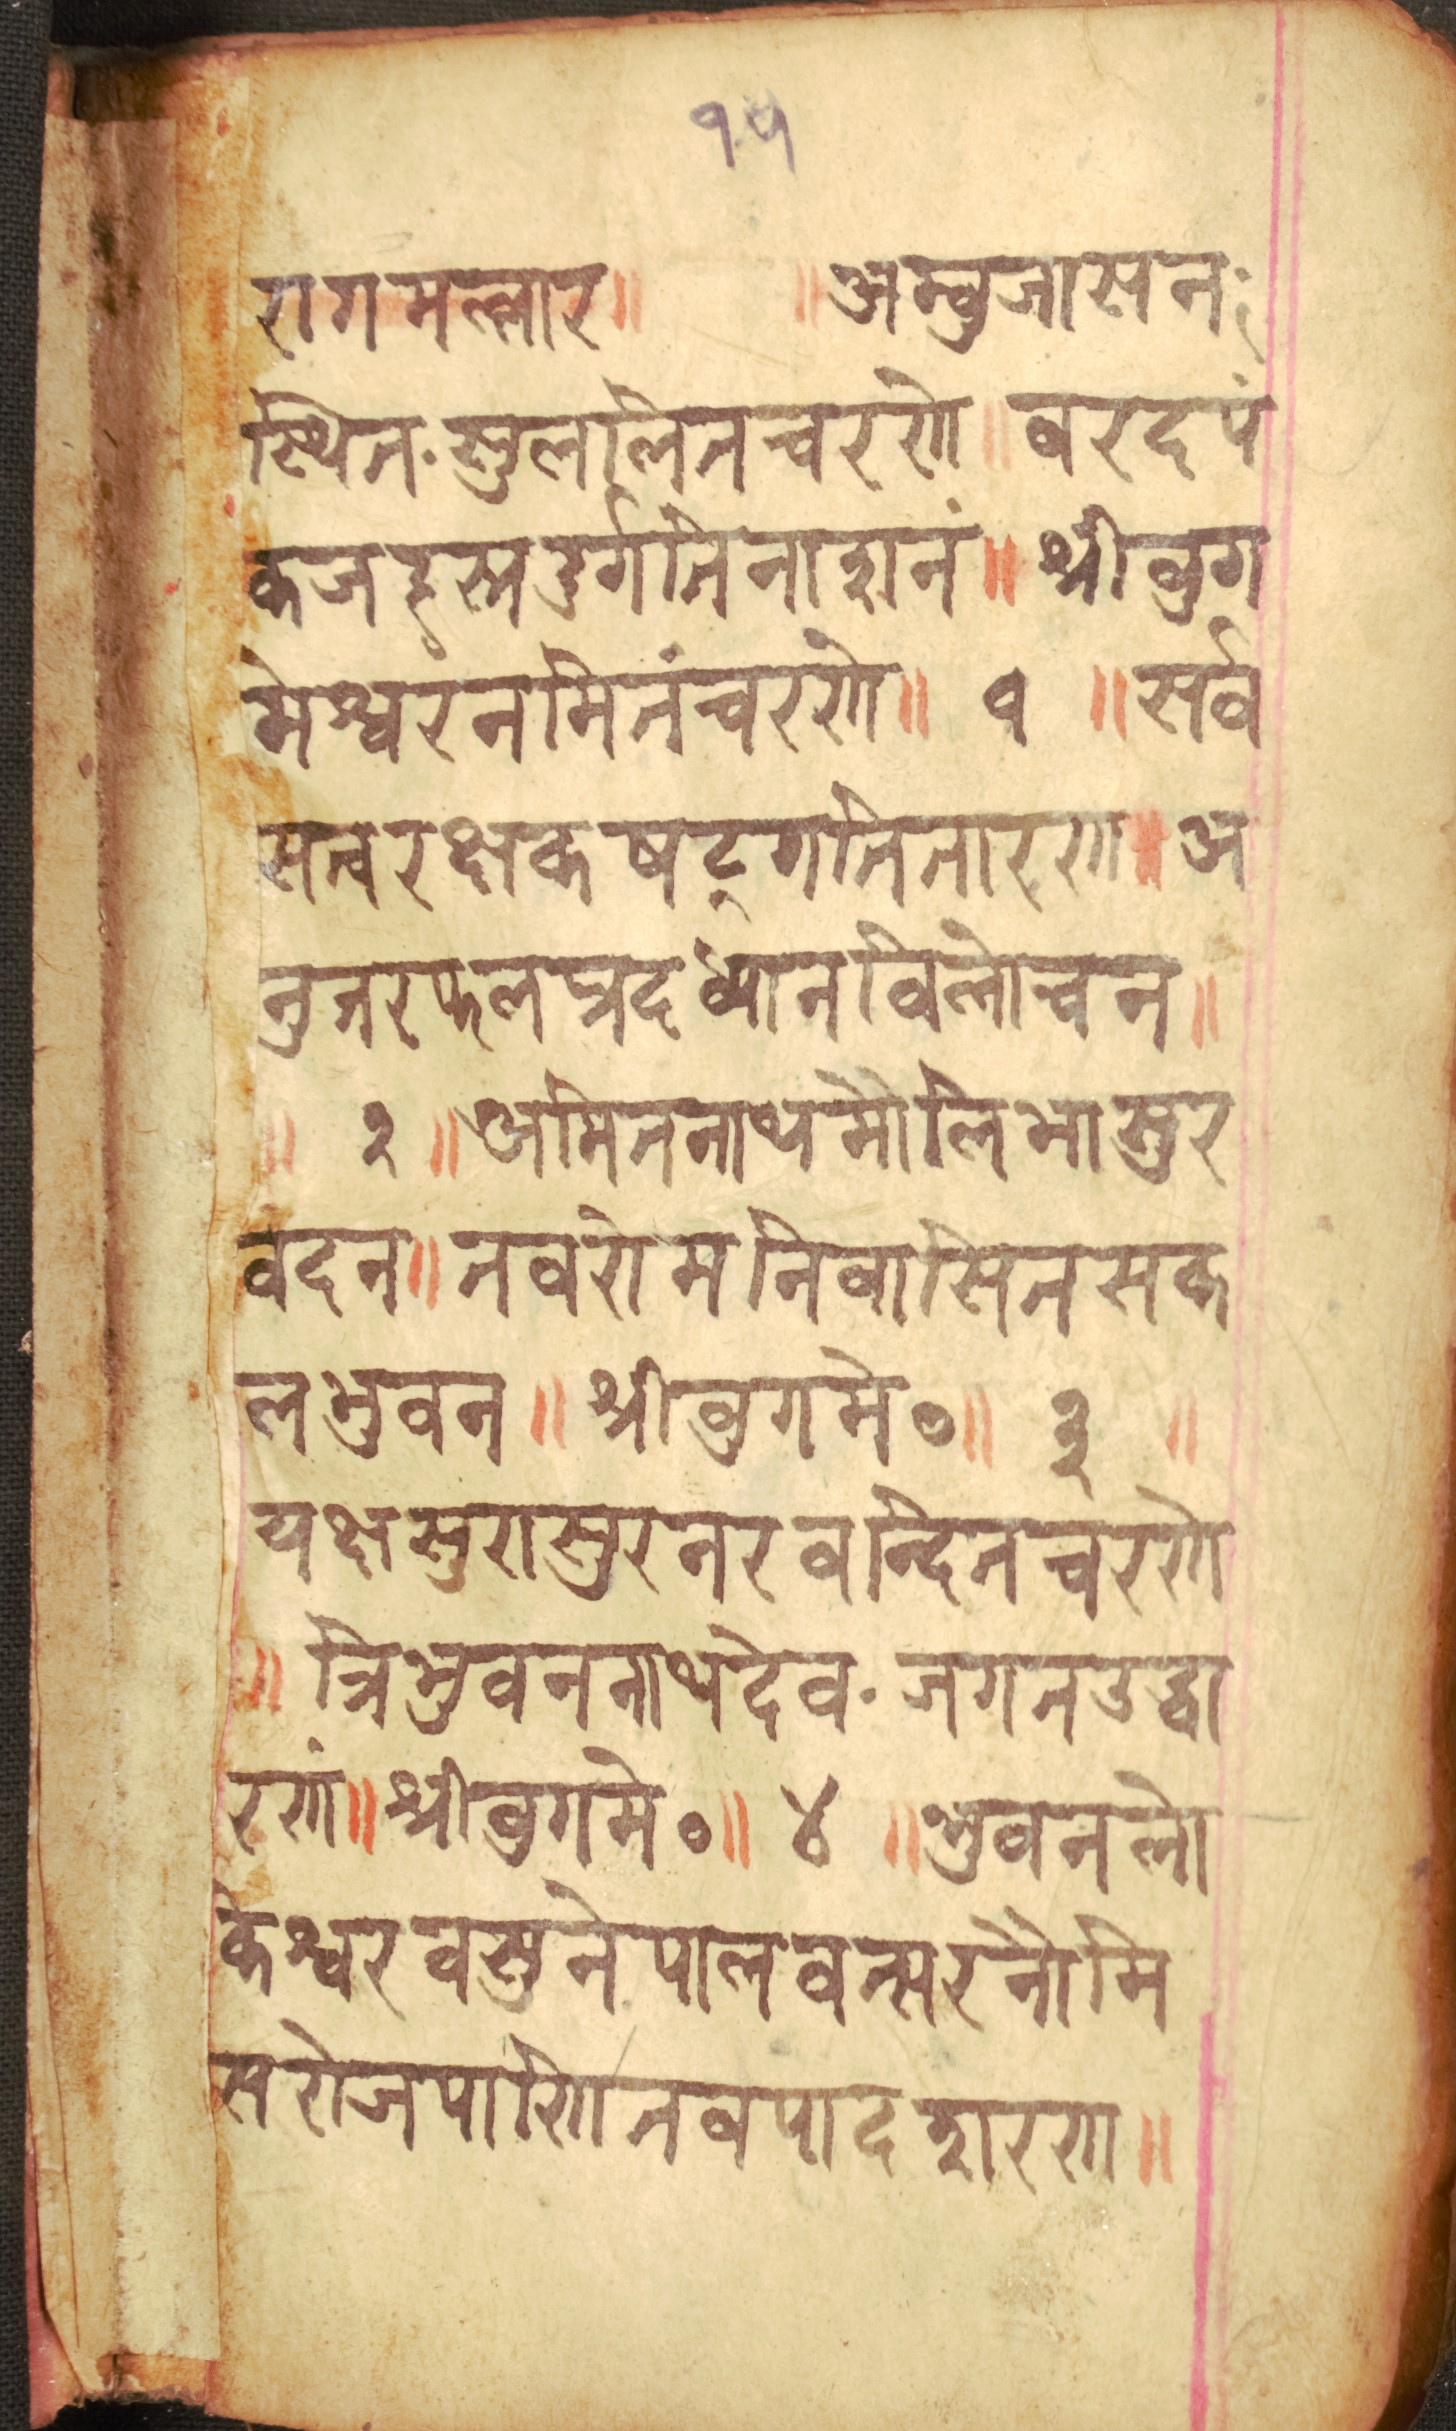 १५
रागमल्लार॥ ॥अम्बुजासनः
स्थित·सुललितचरणे॥वरदपं
कजहस्तदुर्गतिनाशनं॥श्रीवुग
मेश्वरंनमितंचरणे॥ १ ॥सर्व
सत्वरक्षकषट्गतितारण॥अ
नुत्तरफलप्रदध्यानविलोचन॥
॥ २ ॥अमितनाथमौलिभासुर
वदन॥नवरोमनिवासितसक
लभुवन॥श्रीवुगमे०॥ ३ ॥
यक्षसुरासुरनरवन्दितचरणे
॥त्रिभुवननाथदेव·जगतउद्धा
रणं॥श्रीवुगमे०॥ ४ ॥भुवनलो
केश्वरवसुनेपालवत्सरनौमि
सरोजपाणितवपादशरण॥